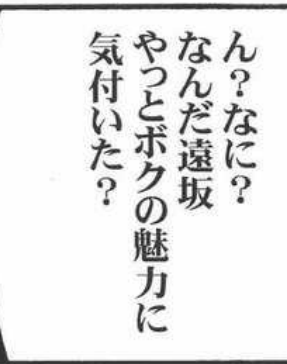 ん？なに？
なんだ遠坂
やっとボクの魅力に
気付いた？